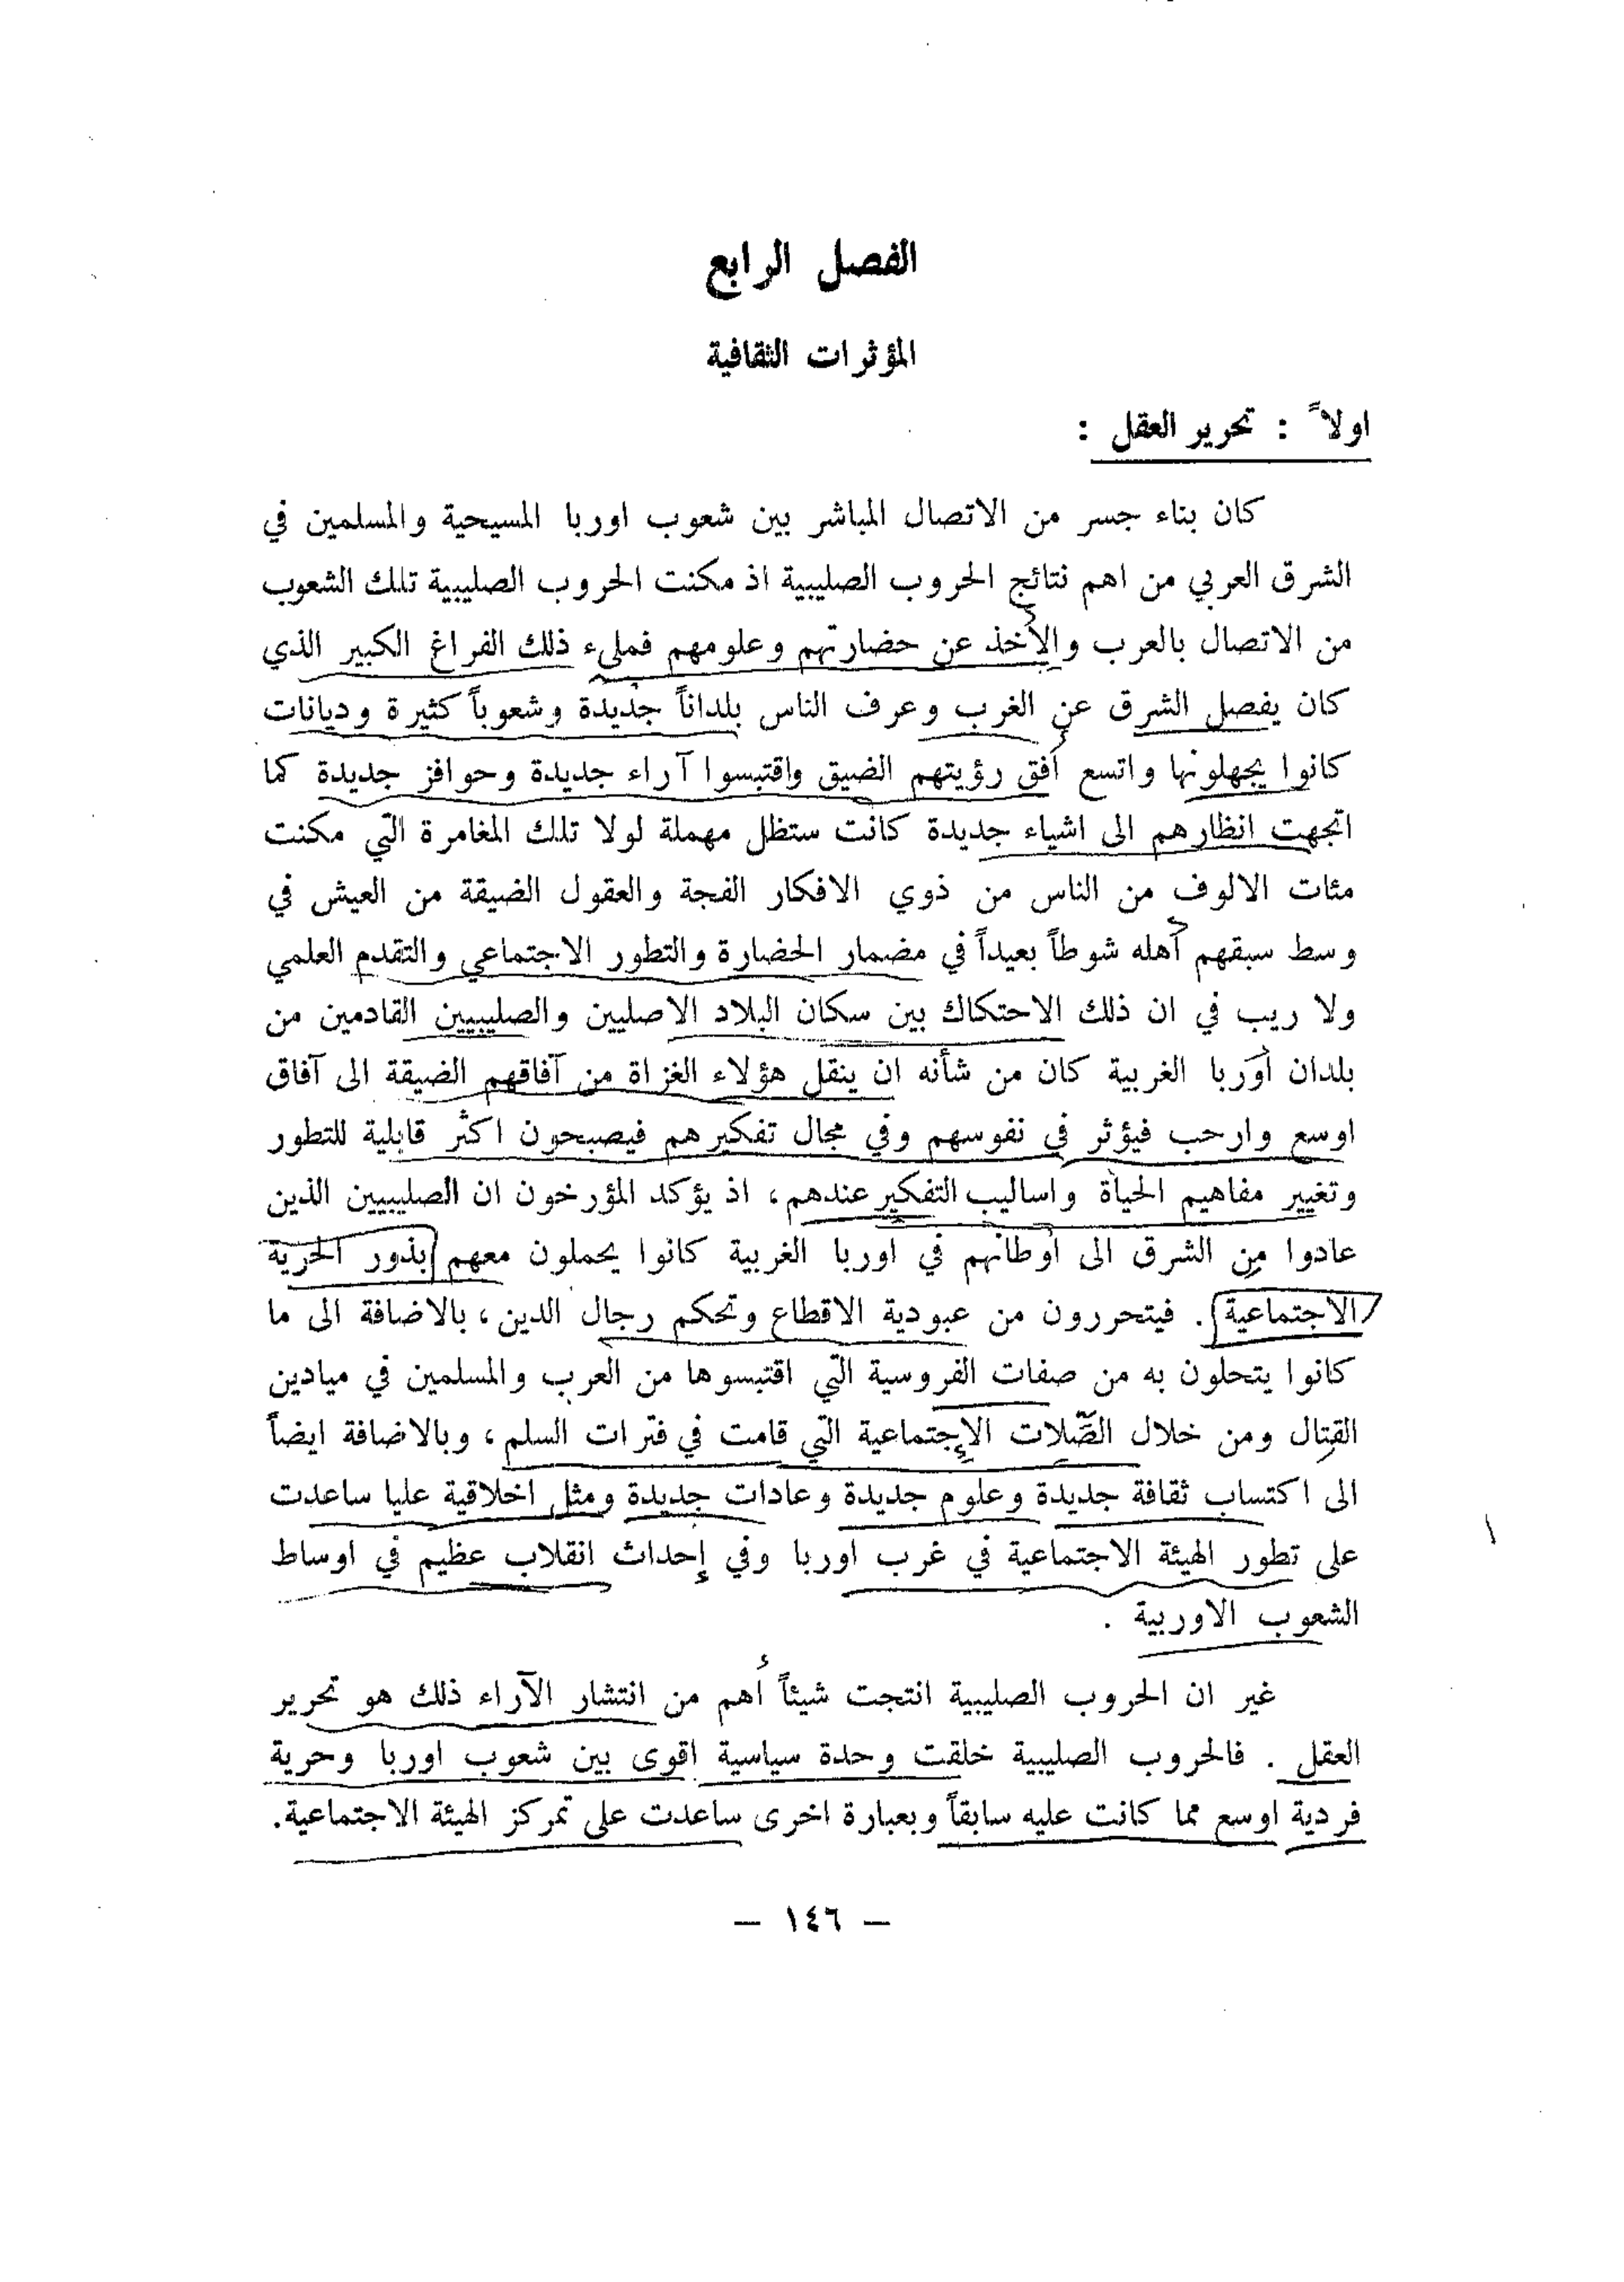 الفصل الرابع
المؤثرات الثقافية
اولاً : تحرير العقل :
كان بناء جسر من الاتصال المباشر بين شعوب اوربا المسيحية والمسلمين في
الشرق العربي من اهم نتائج الحروب الصليبية اذ مكنت الحروب الصليبية تلك الشعوب
من الاتصال بالعرب والأخذ عن حضارتهم وعلومهم فمليء ذلك الفراغ الكبير الذي
كان يفصل الشرق عن الغرب وعرف الناس بلداناً جديدة وشعوباً كثيرة وديانات
كانوا يجهلونها واتسع أفق رؤيتهم الضيق واقتبسوا آراء جديدة وحوافز جديدة كما
اتجهت انظارهم الى اشياء جديدة كانت ستظل مهملة لولا تلك المغامرة التي مكنت
مئات الالوف من الناس من ذوي الافكار الفجة والعقول الضيقة من العيش في
وسط سبقهم أهله شوطاً بعيداً في مضمار الحضارة والتطور الاجتماعي والتقدم العلمي
ولا ريب في ان ذلك الاحتكاك بين سكان البلاد الاصليين والصليبيين القادمين من
بلدان أوربا الغربية كان من شأنه ان ينقل هؤلاء الغزاة من آفاقهم الضيقة الى آفاق
اوسع وارحب فيؤثر في نفوسهم وفي مجال تفكيرهم فيصبحون اكثر قابلية للتطور
وتغيير مفاهيم الحياة واساليب التفكير عندهم، اذ يؤكد المؤرخون ان الصليبيين الذين
عادوا مِن الشرق الى أوطانهم في اوربا الغربية كانوا يحملون معهم بذور الحرية
الاجتماعية . فيتحررون من عبودية الاقطاع وتحكم رجال الدين، بالاضافة الى ما
كانوا يتحلون به من صفات الفروسية التي اقتبسوها من العرب والمسلمين في ميادين
القِتال ومن خلال الصِّلات الإِجتماعية التي قامت في فترات السلم، وبالاضافة ايضاً
الى اكتساب ثقافة جديدة وعلوم جديدة وعادات جديدة ومثل اخلاقية عليا ساعدت
على تطور الهيئة الاجتماعية في غرب اوربا وفي إحداث انقلاب عظيم في اوساط
الشعوب الاوربية .
غير ان الحروب الصليبية انتجت شيئاً أهم من انتشار الآراء ذلك هو تحرير
العقل . فالحروب الصليبية خلقت وحدة سياسية اقوى بين شعوب اوربا وحرية
فردية اوسع مما كانت عليه سابقاً وبعبارة اخرى ساعدت على تمركز الهيئة الاجتماعية.
— ١٤٦ —